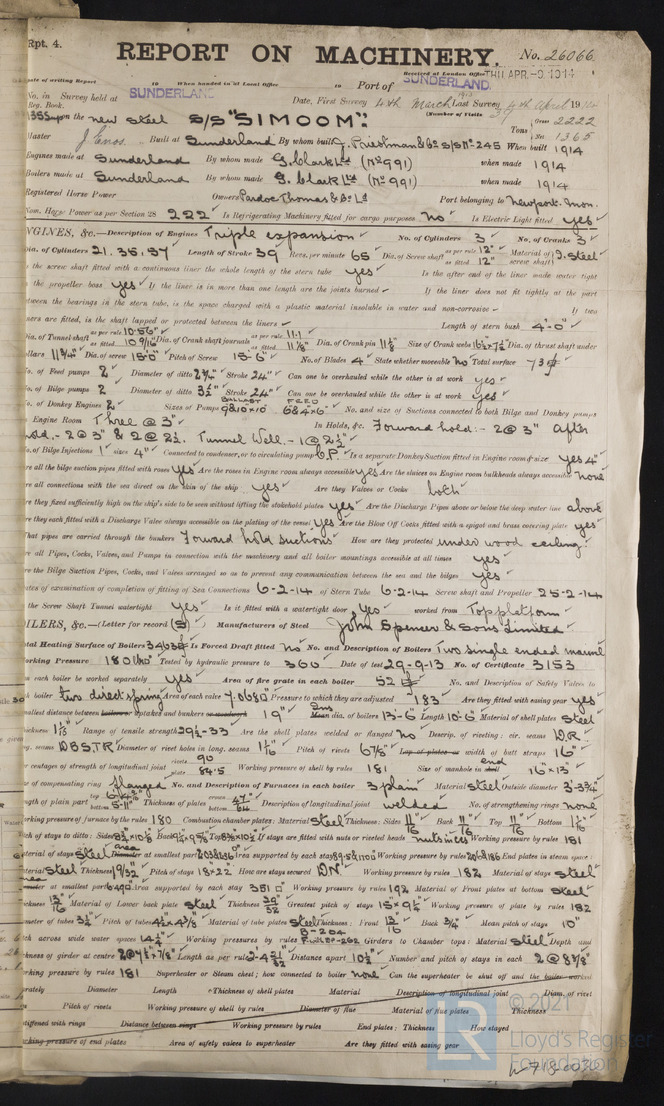 Rpt. 4.
REPORT ON MACHINERY.
No. 26066
Date of writing Report When handed in at Local Office Port of SUNDERLAND Received at London Office THU. APR. -9. 1914
No. in Survey held at SUNDERLAND Date, First Survey 4th March Last Survey 4th April 1914
Reg. Book. (Number of Visits 39
on the new steel S/S "SIMOOM" Tons Gross 2222 Net 1365
Master J Enos. Built at Sunderland By whom built J. Priestman & Co S/S No 245 When built 1914
Engines made at Sunderland By whom made G. Clark Ltd (No 991) when made 1914
Boilers made at Sunderland By whom made G. Clark Ltd (No 991) when made 1914
Registered Horse Power Owners Pardoe Thomas & Co Ld Port belonging to Newport. Mon.
Nom. Horse Power as per Section 28 222 Is Refrigerating Machinery fitted for cargo purposes No Is Electric Light fitted yes
ENGINES, &c.—Description of Engines Triple expansion No. of Cylinders 3 No. of Cranks 3
Dia. of Cylinders 21. 35. 57 Length of Stroke 39 Revs. per minute 65 Dia. of Screw shaft as per rule 12" as fitted 12" Material of screw shaft I. steel
Is the screw shaft fitted with a continuous liner the whole length of the stern tube yes Is the after end of the liner made water tight
in the propeller boss yes If the liner is in more than one length are the joints burned If the liner does not fit tightly at the part
between the bearings in the stern tube, is the space charged with a plastic material insoluble in water and non-corrosive If two
liners are fitted, is the shaft lapped or protected between the liners Length of stern bush 4'-0"
Dia. of Tunnel shaft as per rule 10.56" as fitted 10 9/16" Dia. of Crank shaft journals as per rule 11.1 as fitted 11 1/8" Dia. of Crank pin 11 1/8 Size of Crank webs 16 1/2 x 7 1/2 Dia. of thrust shaft under
collars 11 3/4" Dia. of screw 15'0" Pitch of Screw 15'-6" No. of Blades 4 State whether moveable No Total surface 73
No. of Feed pumps 2 Diameter of ditto 2 3/4" Stroke 24" Can one be overhauled while the other is at work yes
No. of Bilge pumps 2 Diameter of ditto 3 1/2" Stroke 24" Can one be overhauled while the other is at work yes
No. of Donkey Engines 2 Sizes of Pumps BALLAST 9 & 10 x 10 FEED 6 & 4 x 6" No. and size of Suctions connected to both Bilge and Donkey pumps
In Engine Room Three @ 3" In Holds, &c. Forward hold:- 2 @ 3" After
hold.- 2 @ 3" & 2 @ 2 1/2. Tunnel Well.- 1 @ 2 1/2"
No. of Bilge Injections 1 sizes 4" Connected to condenser, or to circulating pump C.P. Is a separate Donkey Suction fitted in Engine room & size yes 4"
Are all the bilge suction pipes fitted with roses yes Are the roses in Engine room always accessible yes Are the sluices on Engine room bulkheads always accessible none
Are all connections with the sea direct on the skin of the ship yes Are they Valves or Cocks both
Are they fixed sufficiently high on the ship's side to be seen without lifting the stokehold plates yes Are the Discharge Pipes above or below the deep water line above
Are they each fitted with a Discharge Valve always accessible on the plating of the vessel yes Are the Blow Off Cocks fitted with a spigot and brass covering plate yes
What pipes are carried through the bunkers Forward hold suctions How are they protected under wood ceiling.
Are all Pipes, Cocks, Valves, and Pumps in connection with the machinery and all boiler mountings accessible at all times yes
Are the Bilge Suction Pipes, Cocks, and Valves arranged so as to prevent any communication between the sea and the bilges yes
Dates of examination of completion of fitting of Sea Connections 6-2-14 of Stern Tube 6-2-14 Screw shaft and Propeller 25-2-14
Is the Screw Shaft Tunnel watertight yes Is it fitted with a watertight door yes worked from Top platform
BOILERS, &c.—(Letter for record (S) Manufacturers of Steel John Spencer & Sons Limited
Total Heating Surface of Boilers 3463 Is Forced Draft fitted No No. and Description of Boilers Two single ended marine
Working Pressure 180 lbs Tested by hydraulic pressure to 360 Date of test 29-9-13 No. of Certificate 3153
Can each boiler be worked separately yes Area of fire grate in each boiler 52 No. and Description of Safety Valves to
each boiler two direct spring Area of each valve 7.068 Pressure to which they are adjusted 183 Are they fitted with easing gear yes
Smallest distance between boilers or uptakes and bunkers or woodwork 19" Mean dia. of boilers 13'-6 Length 10'-6 Material of shell plates Steel
Thickness 1 1/8 Range of tensile strength 29 1/2-33 Are the shell plates welded or flanged No Descrip. of riveting: cir. seams D.R.
long. seams D.B.S.T.R Diameter of rivet holes in long. seams 1 1/16" Pitch of rivets 6 7/8" Lap of plates or width of butt straps 16"
Per centages of strength of longitudinal joint rivets 90 plate 84.5 Working pressure of shell by rules 181 Size of manhole in end 16" x 13"
Size of compensating ring flanged No. and Description of Furnaces in each boiler 3 plain Material Steel Outside diameter 3'-3 3/4"
Length of plain part top bottom 5'-11" Thickness of plates crown bottom 47/64 Description of longitudinal joint welded No. of strengthening rings none
Working pressure of furnace by the rules 180 Combustion chamber plates: Material Steel Thickness: Sides 11/16 Back 11/16 Top 11/16 Bottom 1 1/16
Pitch of stays to ditto: If stays are fitted with nuts or riveted heads nuts inside Working pressure by rules 181
Material of stays Steel Area at smallest part Area supported by each stay Working pressure by rules End plates in steam space:
Material Steel Thickness 19/32 Pitch of stays 18 x 22 How are stays secured D.N. Working pressure by rules 182 Material of stays Steel
Area at smallest part Area supported by each stay 351 Working pressure by rules 192 Material of Front plates at bottom Steel
Thickness 13/16 Material of Lower back plate Steel Thickness Greatest pitch of stays 15 x 9 1/4 Working pressure of plate by rules 182
Diameter of tubes 3 1/4" Pitch of tubes 4 1/2 x 4 3/8" Material of tube plates Steel Thickness: Front 13/16 Back 3/4" Mean pitch of stays 10"
Pitch across wide water spaces 14 1/4" Working pressures by rules Girders to Chamber tops: Material Steel Depth and
thickness of girder at centre Length as per rule Distance apart 10 1/2" Number and pitch of stays in each 2 @ 8 7/8"
Working pressure by rules 181 Superheater or Steam chest; how connected to boiler none Can the superheater be shut off and the boiler worked
separately Diameter Length Thickness of shell plates Material Description of longitudinal joint Diam. of rivet
Pitch of rivets Working pressure of shell by rules Diameter of flue Material of flue plates Thickness
If stiffened with rings Distance between rings Working pressure by rules End plates: Thickness How stayed
Working pressure of end plates Area of safety valves to superheater Are they fitted with easing gear
© 2021
LR
Lloyd's Register
Foundation